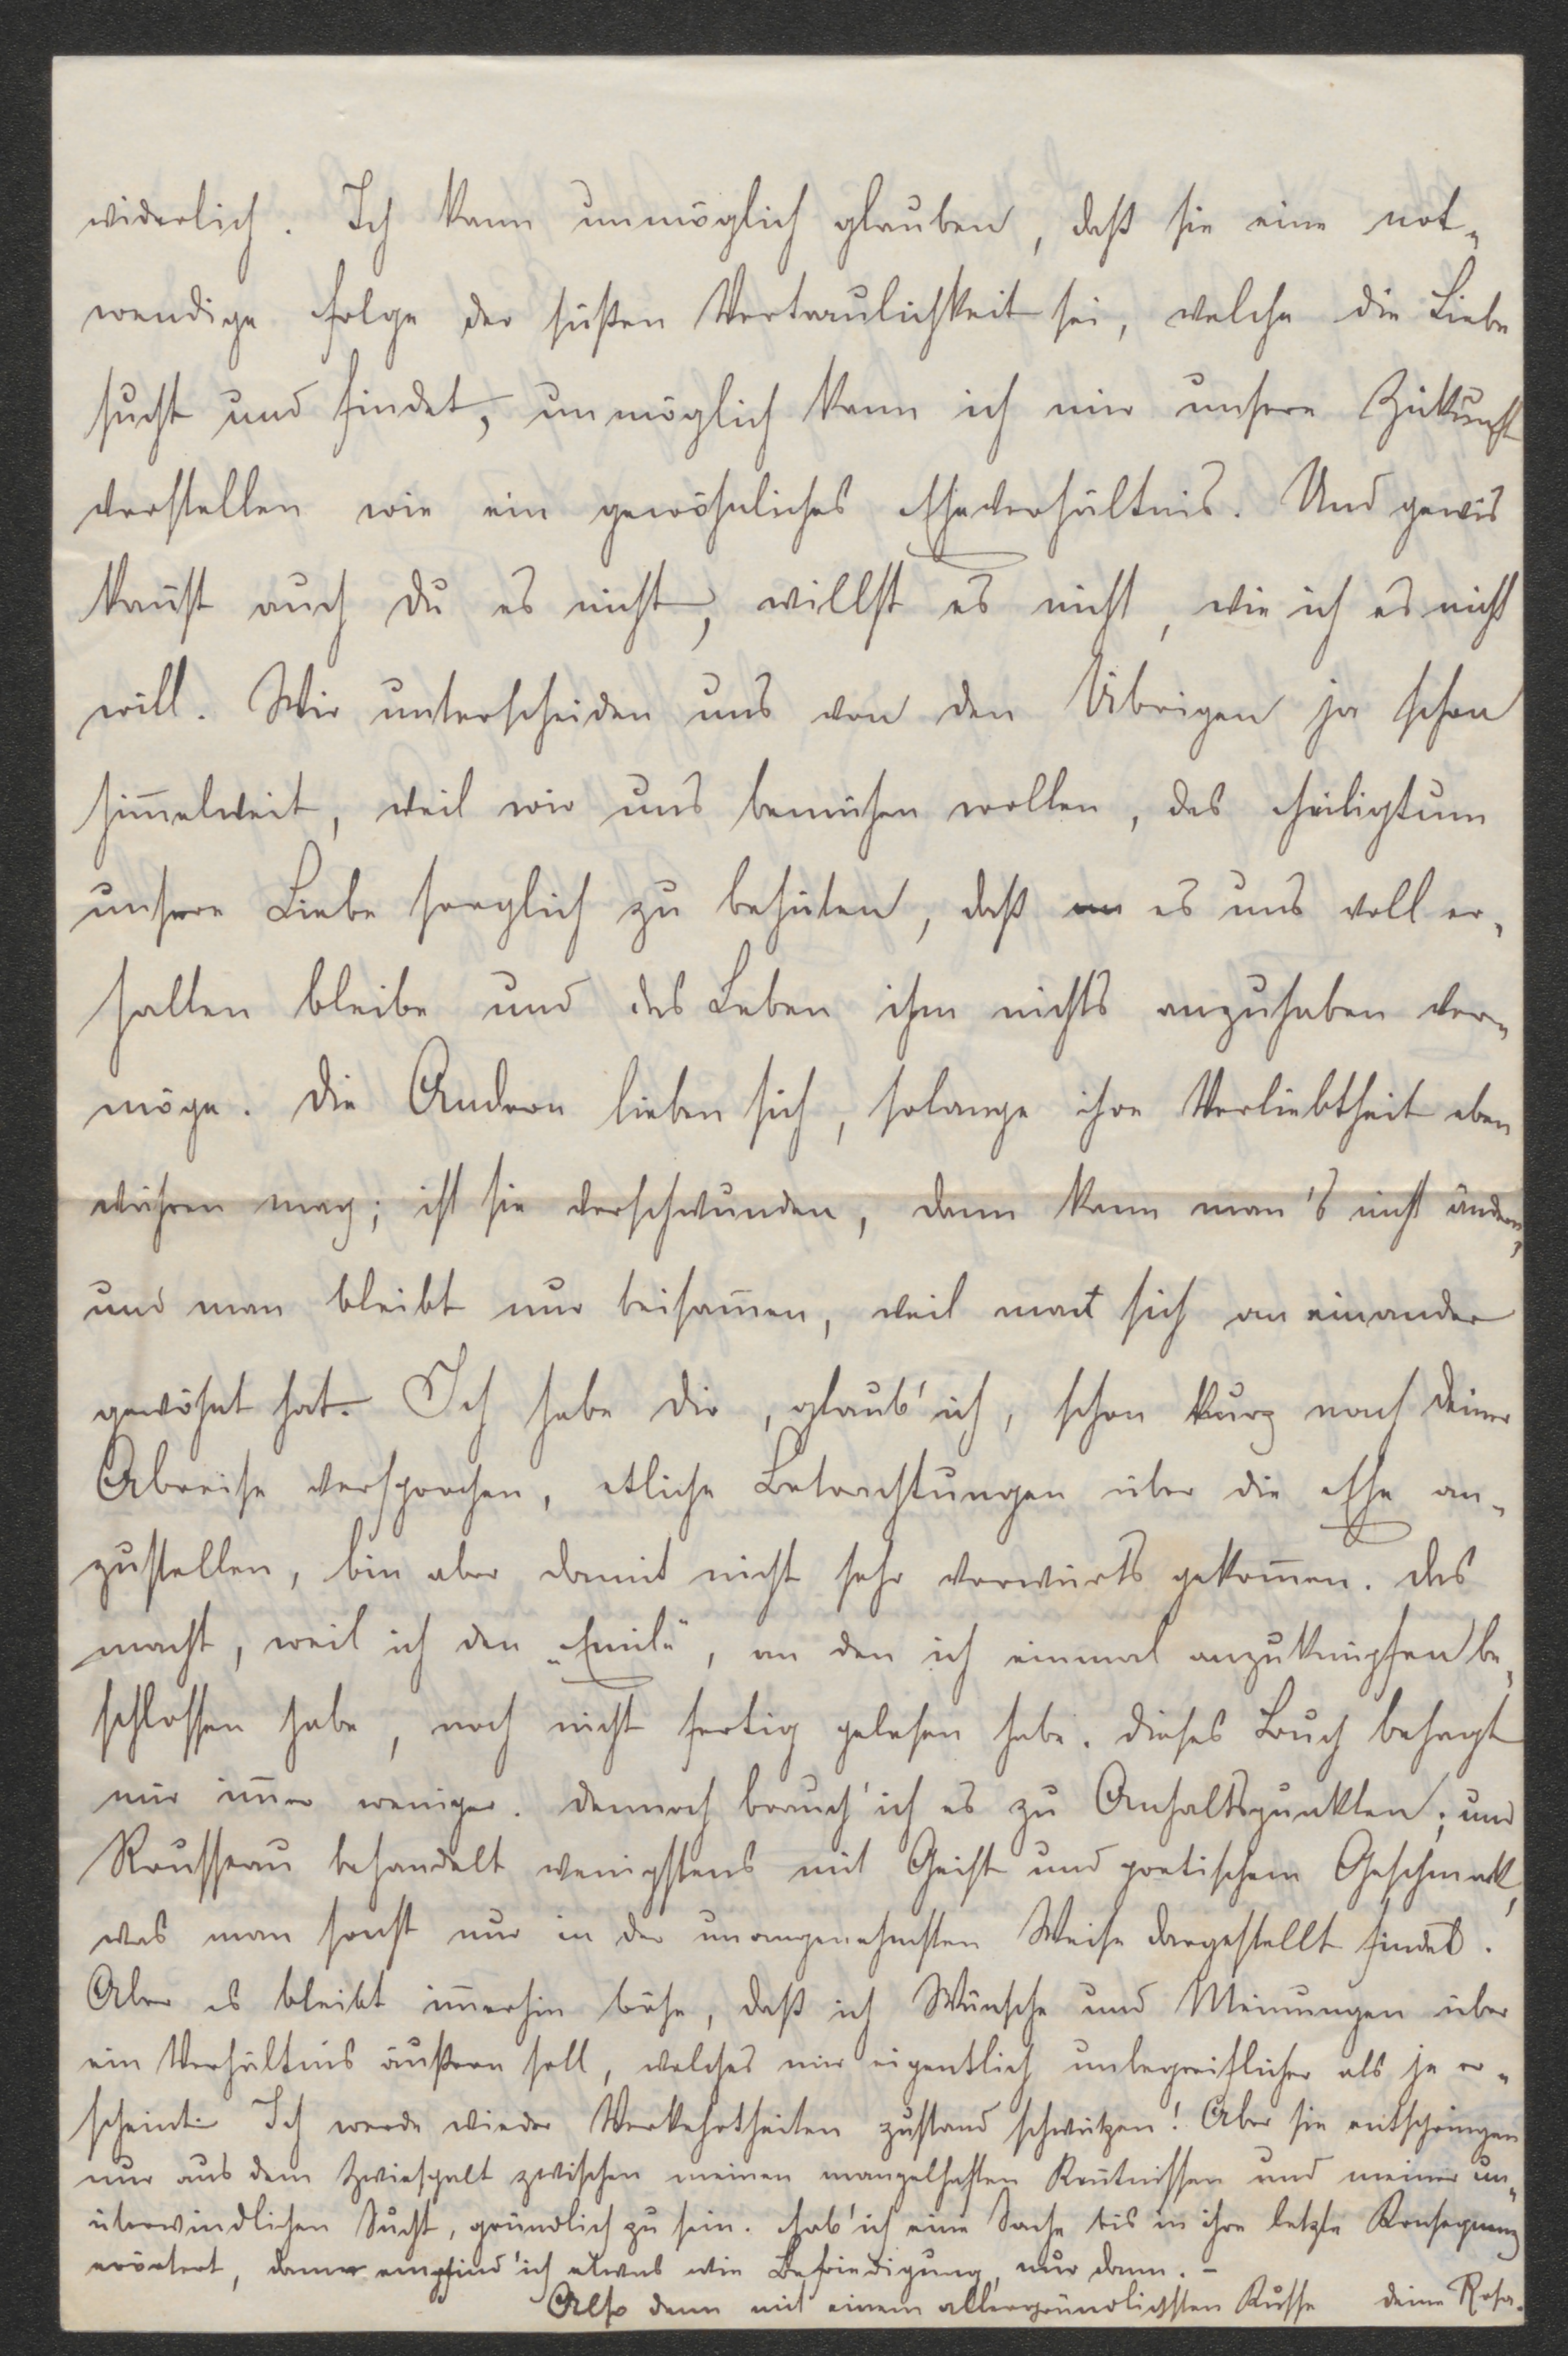 widerlich. Ich kann unmöglich glauben, daß sie eine not-
wendige Folge der süßen Vertraulichkeit sei, welche die Liebe
sucht und findet, unmöglich kann ich mir unsere Zukunft
vorstellen wie ein gewöhnliches Eheverhältnis. Und gewis
kan̄st auch du es nicht, willst es nicht, wie ich es nicht
will. Wir unterscheiden uns von den Übrigen ja schon
him̄elweit, weil wir uns bemühen wollen, das Heiligtum
unsere Liebe sorglich zu behüten, daß es uns voll er-
halten bleibe und das Leben ihm nichts anzuhaben ver-
möge. Die Andern lieben sich, solange ihre Verliebtheit eben
währen mag; ist sie verschwunden, dann kann man's nicht ändern,
und man bleibt nur beisam̄en, weil man sich an einander
gewöhnt hat. Ich habe dir, glaub' ich, schon kurz nach deiner
Abreise versprochen, etliche Betrachtungen über die Ehe an-
zustellen, bin aber damit nicht sehr vorwärts gekom̄en. Das
macht, weil ich den „Emil“, an den ich einmal anzuknüpfen be-
schlossen habe, noch nicht fertig gelesen habe. Dieses Buch behagt
mir im̄er weniger. Dennoch brauch' ich es zu Anhaltspunkten; und
Rousseau behandelt wenigstens mit Geist und poetischem Geschmack,
was man sonst nur in der unangenehmsten Weise dargestellt findet.
Aber es bleibt im̄erhin böse, daß ich Wünsche und Meinungen über
ein Verhältnis äußern soll, welches mir eigentlich unbegreiflicher als je er-
scheint. Ich werde wieder Verkehrtheiten zustand schwätzen! Aber sie entspringen
nur aus dem Zwiespalt zwischen meinen mangelhaften Ken̄tnissen und meiner un-
überwindlichen Sucht, gründlich zu sein. Hab' ich eine Sache bis in ihre letzte Konsequenz
erörtert, dann empfind' ich etwas wie Befriedigung, nur dann. –
Also denn mit einem allergründlichsten Kusse deine Rosa.